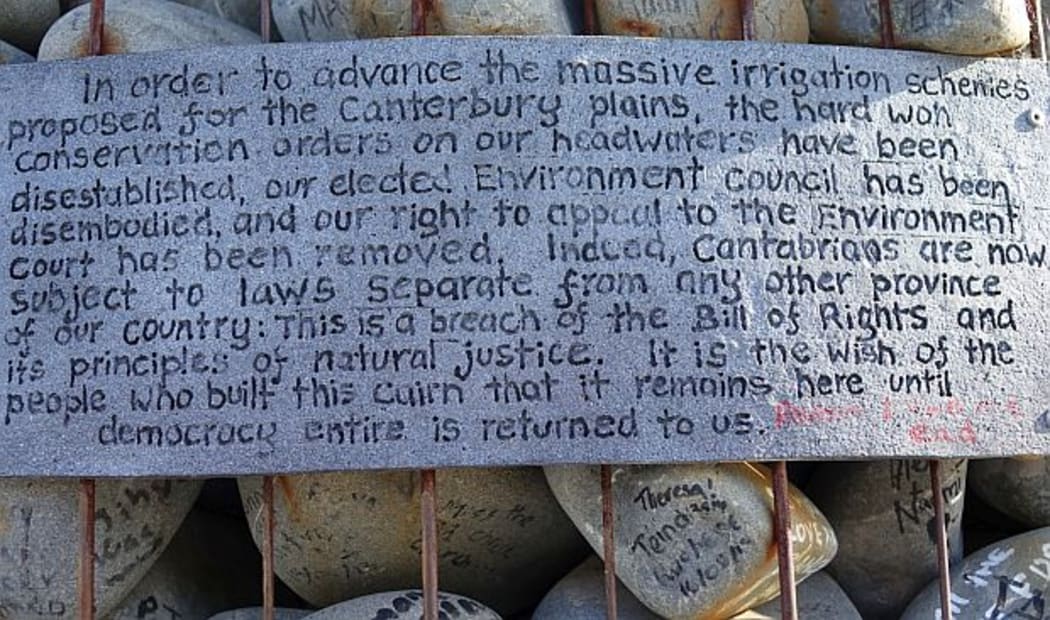 MA
In order to advance the massive irrigation schemes
proposed for the Canterbury plains, the hard won
conservation orders on our headwaters have been
disestablished, our elected Environment council has been
disembodied, and our right to appeal to the Environment
court has been removed. Indeed, Cantabrians are now
subject to laws separate from any other province
of our country: This is a breach of the Bill of Rights and
its principles of natural justice. It is the wish of the
people who built this cairn that it remains here until
democracy entire is returned to us.
end
Theresa